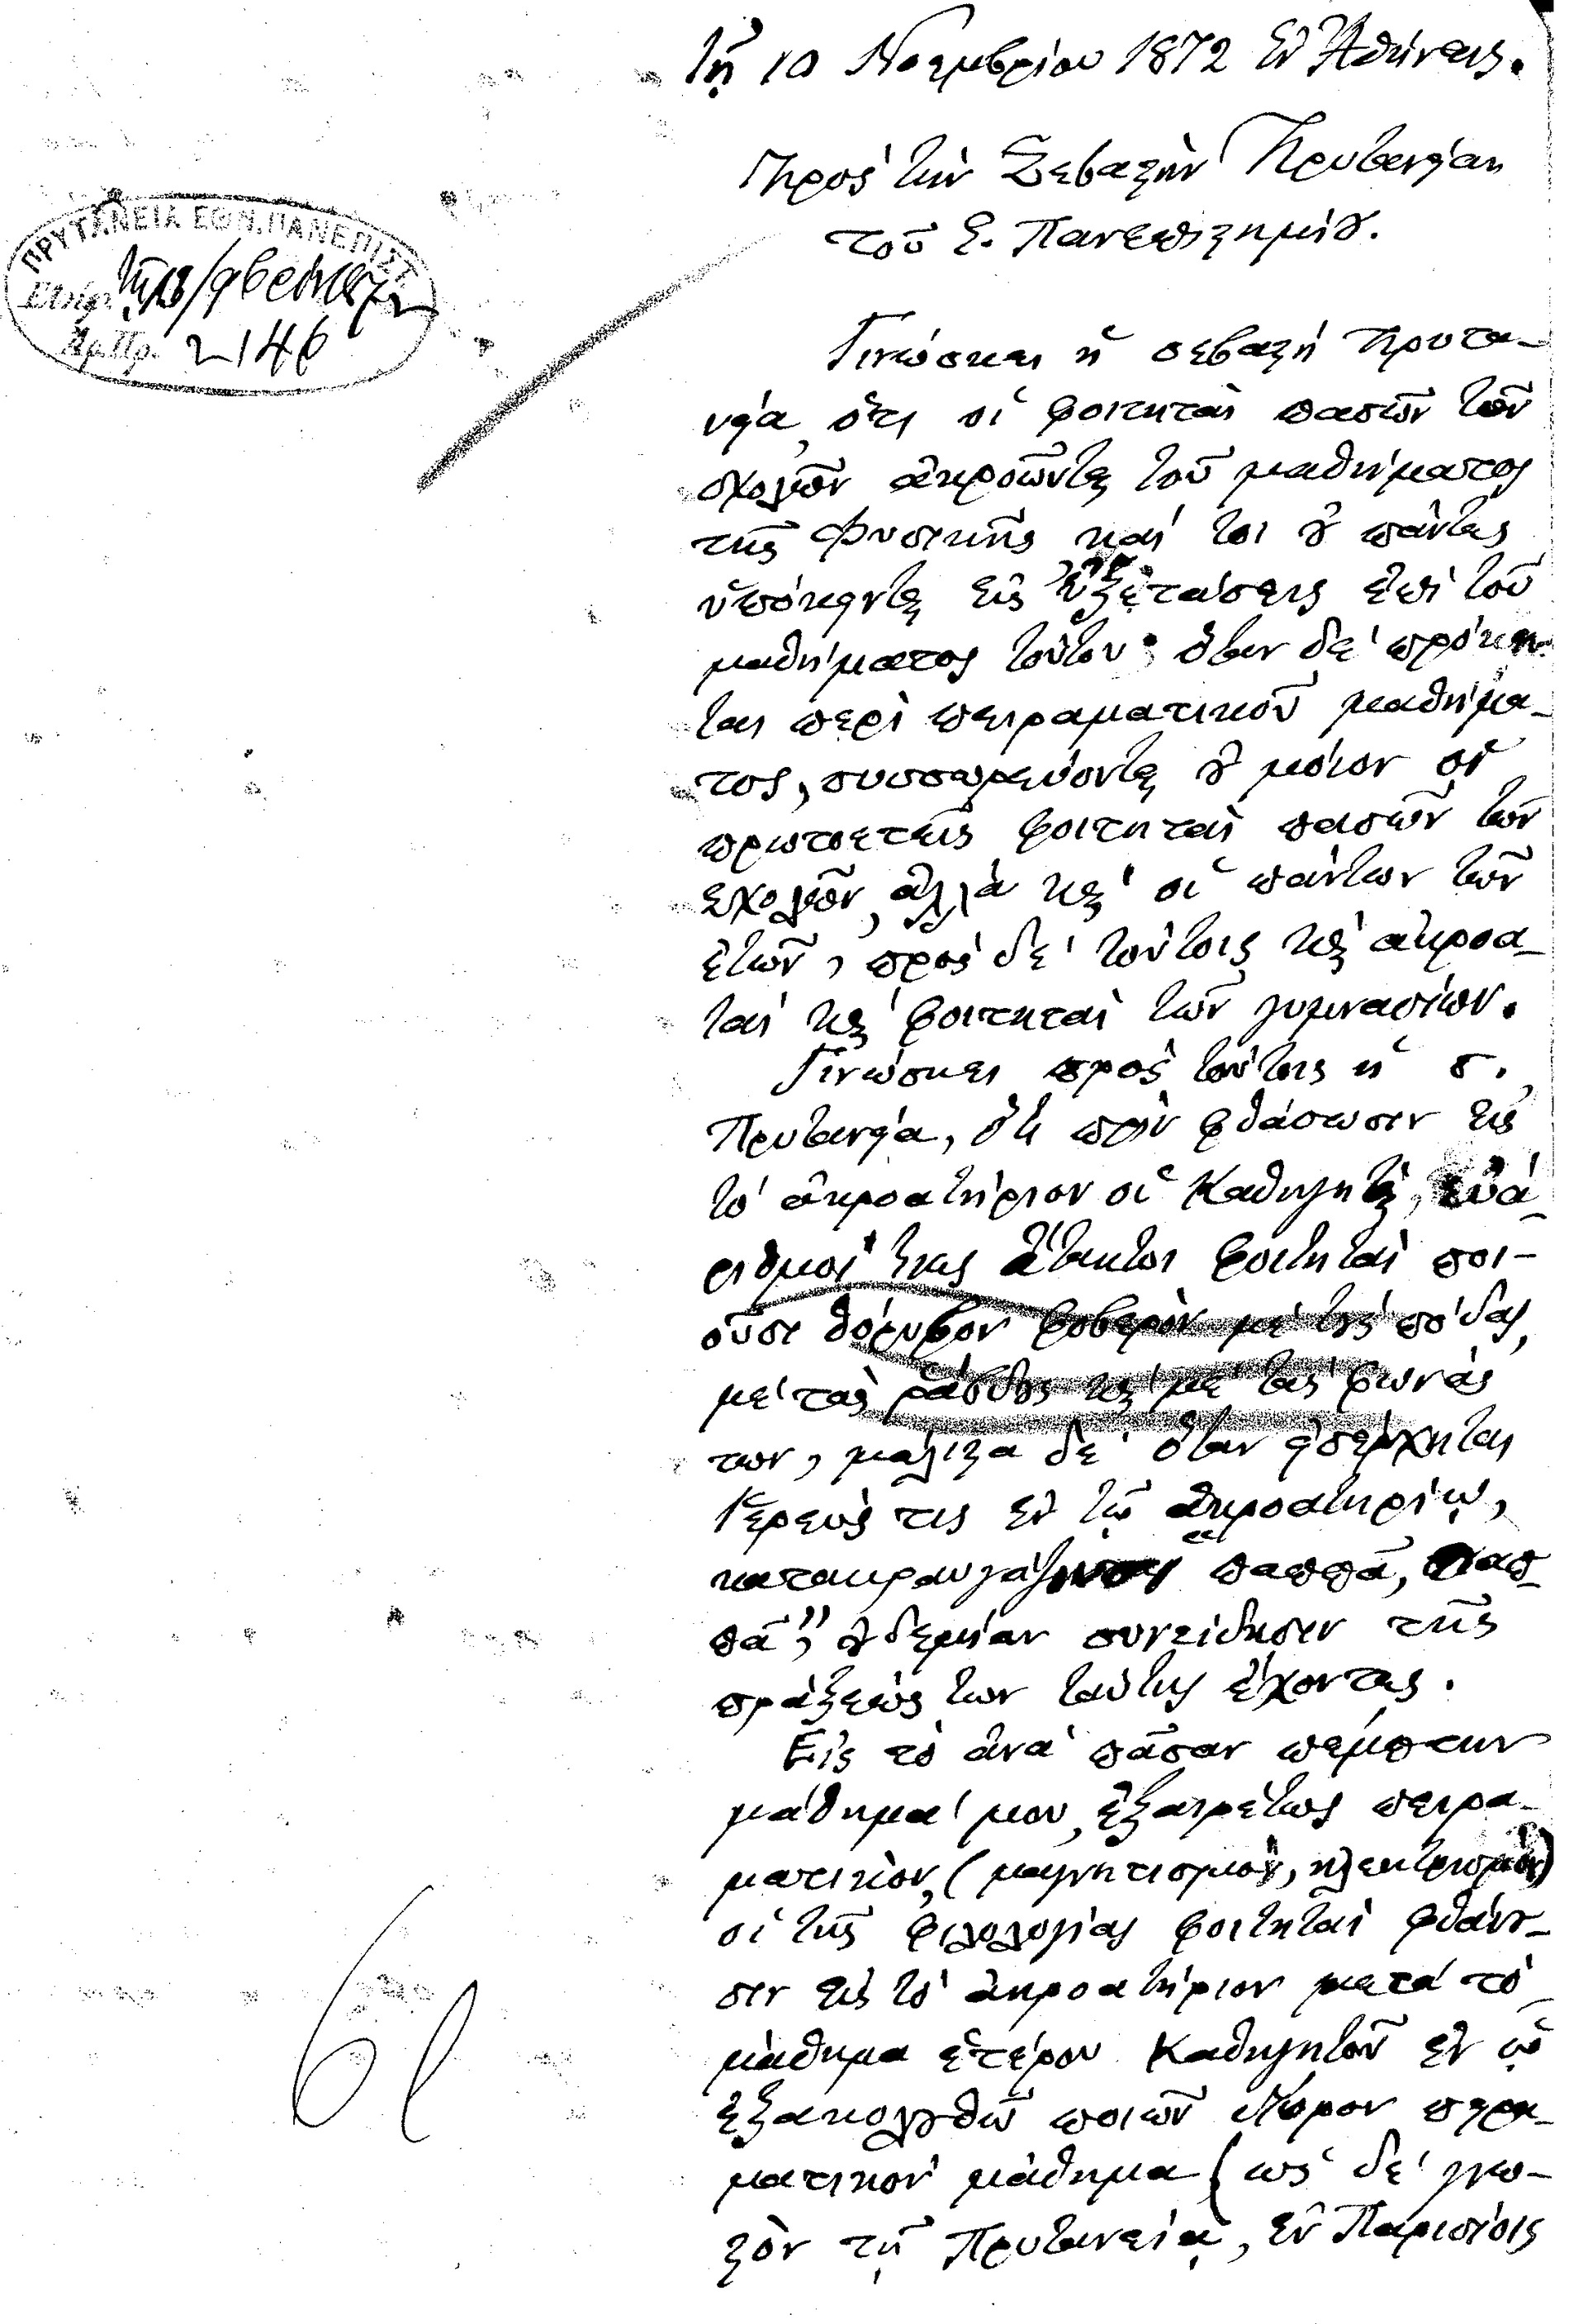 Τῇ 10 Νοεμβρίου 1872 Ἐν Ἀθήναις.
Πρὸς τὴν Σεβαστὴν Πρυτανείαν
τοῦ Ἐ. Πανεπιστημίου.
ΠΡΥΤΑΝΕΙΑ ΕΘΝ. ΠΑΝΕΠΙΣΤ.
Ἀρ. Πρ. 2146
Γινώσκει ἡ σεβαστὴ Πρυτα-
νεία, ὅτι οἱ φοιτηταὶ πασῶν τῶν
σχολῶν ἀκροῶνται τοῦ μαθήματος
τῆς Φυσικῆς καί τοι οὐ πάντες
ὑπόκεινται εἰς ἐξετάσεις ἐπὶ τοῦ
μαθήματος τούτου· ὅταν δὲ πρόκει-
ται περὶ πειραματικοῦ μαθήμα-
τος, συσσωρεύονται οὐ μόνον οἱ
πρωτοετεῖς φοιτηταὶ πασῶν τῶν
σχολῶν, ἀλλὰ καὶ οἱ πάντων τῶν
ἐτῶν, πρὸς δὲ τούτοις καὶ ἀκροα-
ταὶ καὶ φοιτηταὶ τῶν γυμνασίων.
Γινώσκει πρὸς τούτοις ἡ σ.
Πρυτανεία, ὅτι πρὶν φθάσωσιν εἰς
τὸ ἀκροατήριον οἱ Καθηγηταὶ, εὐά-
ριθμοί τινες ἄτακτοι φοιτηταὶ ποι-
οῦσι θόρυβον φοβερὸν μὲ τοὺς πόδας,
μὲ τὰς ράβδους καὶ μὲ τὰς φωνάς
των, μάλιστα δὲ ὅταν εἰσέρχηται
Ἱερεύς τις ἐν τῷ ἀκροατηρίῳ,
κατακραυγάζουσι “παππᾶ, παπ-
πᾶ”, οὐδεμίαν συνείδησιν τῆς
πράξεώς των ταύτης ἔχοντες.
Εἰς τὸ ἀνὰ πᾶσαν πέμπτην
μάθημά μου, ἐξαιρέτως πειρα-
ματικὸν, (μαγνητισμὸν, ηλεκτρισμὸν)
οἱ τῆς φιλολογίας φοιτηταὶ φθάνου-
σιν εἰς τὸ ἀκροατήριον μετὰ τὸ
μάθημα ἑτέρου Καθηγητοῦ ἐν ᾧ
ἐξακολουθῶ ποιῶν δίωρον πειρα-
ματικὸν μάθημα (ὡς δὲ γνω-
στὸν τῇ Πρυτανείᾳ, ἐν Παρισίοις